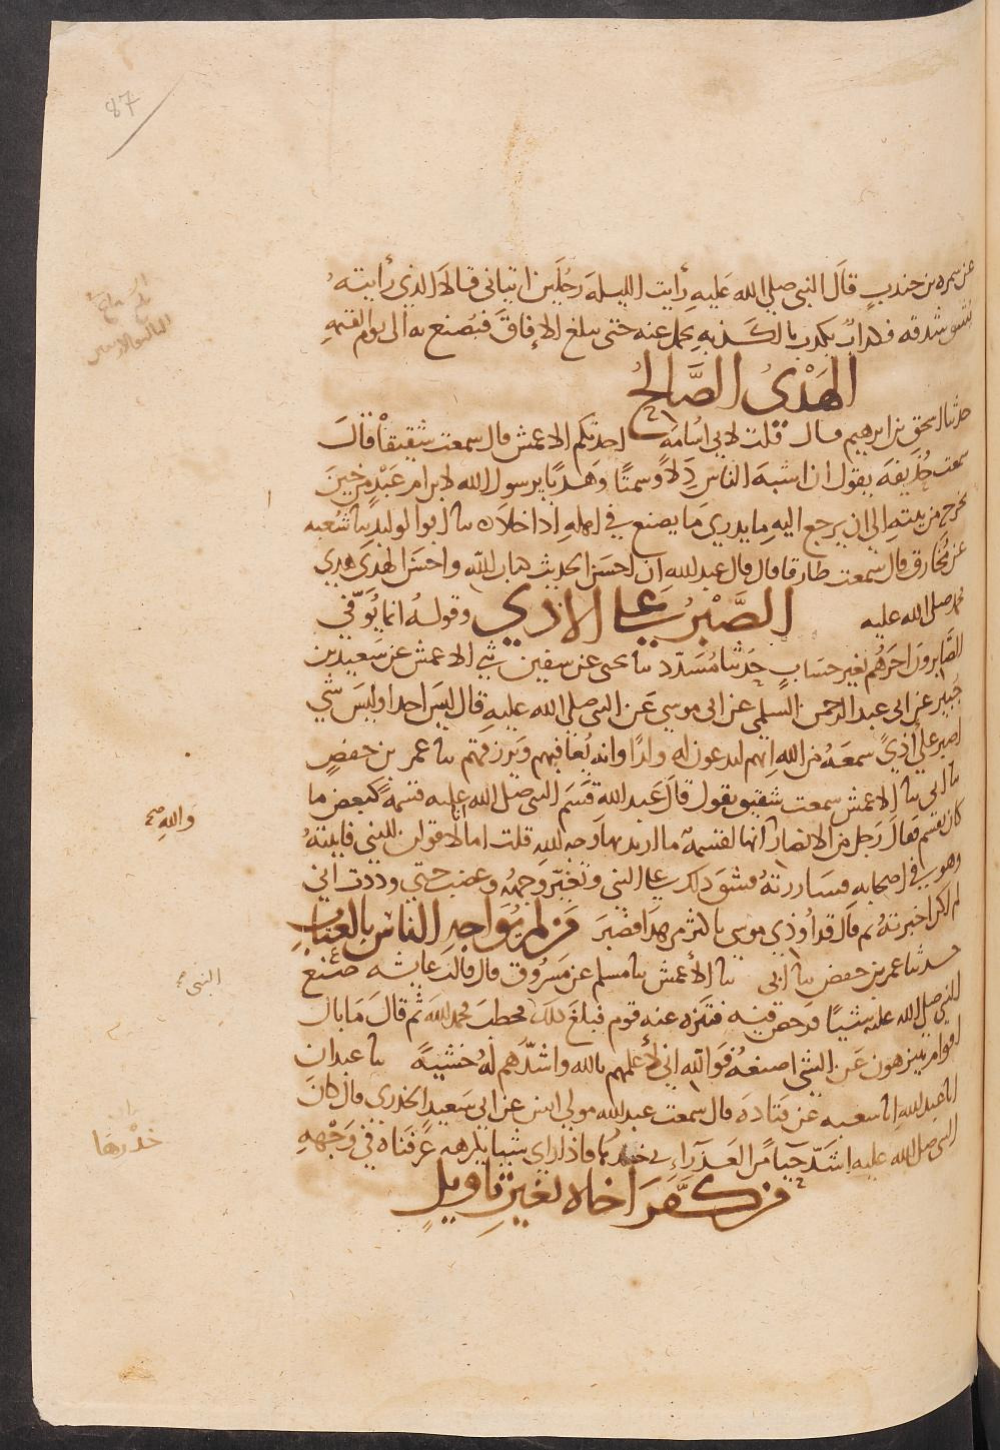 87
عن سمرة بن جندب قال النبي صلى الله عليه رأيت الليلة رجلين اتياني قالا الذي رأيته
يشق شدقه فكذاب يكذب بالكذبة تحمل عنه حتى تبلغ الآفاق فيصنع به الى يوم القيمة
الهدي الصالح
حدثنا اسحق بن ابرهيم قال قلت لابي اسامة احدثكم الاعمش قال سمعت شقيقا قال
سمعت حذيفة يقول ان اشبه الناس دلا وسمتا وهديا برسول الله لابن ام عبد من حين
يخرج من بيته الى ان يرجع اليه ما يدري ما يصنع في اهله اذا خلا ه نا ابو الوليد نا شعبة
عن مخارق قال سمعت طارقا قال قال عبد الله ان احسن الحديث كتاب الله واحسن الهدي هدي
محمد صلى الله عليه الصبر على الاذي وقوله انما يوفى
الصابرون اجرهم بغير حساب حدثنا مسدد نا يحيى عن سفين ني الاعمش عن سعيد بن
جبير عن ابي عبد الرحمن السلمي عن ابي موسي عن النبي صلى الله عليه قال ليس احد او ليس شي
اصبر على أذي سمعه من الله انهم ليدعون له ولدا وانه يعافيهم ويرزقهم نا عمر بن حفص
نا ابي نا الاعمش سمعت شقيق يقول قال عبد الله قسم النبي صلى الله عليه قسمة كبعض ما
كان يقسم فقال رجل من الانصار انها لقسمة ما اريد بها وجه الله قلت اما لاقولن للنبي فاتيته
والله صح
وهو في اصحابه فساررته فشق ذلك على النبي وتغير وجهه وغضب حتي وددت اني
لم اكن اخبرته ثم قال قد اوذي موسى باكثر من هذا فصبر من لم يواجه الناس بالعتاب
حدثنا عمر بن حفص نا ابي نا الأعمش نا مسلم عن مسروق قال قالت عائشة صنع
النبي صح
النبي صلى الله عليه شيئا فرخص فيه فتنزه عنه قوم فبلغ ذلك فخطب فحمد الله ثم قال ما بال
اقوام يتنزهون عن الشي اصنعه فوالله اني لأعلمهم بالله واشدهم له خشية نا عبدان
انا عبد الله انا شعبة عن قتادة قال سمعت عبد الله مولى انس عن ابي سعيد الخدري قال كان
النبي صلى الله عليه اشد حيا من العذرآء في خدرها فاذا راي شيئا يكرهه عرفناه في وجهه
خدرها
من كفر اخاه بغير تاويل